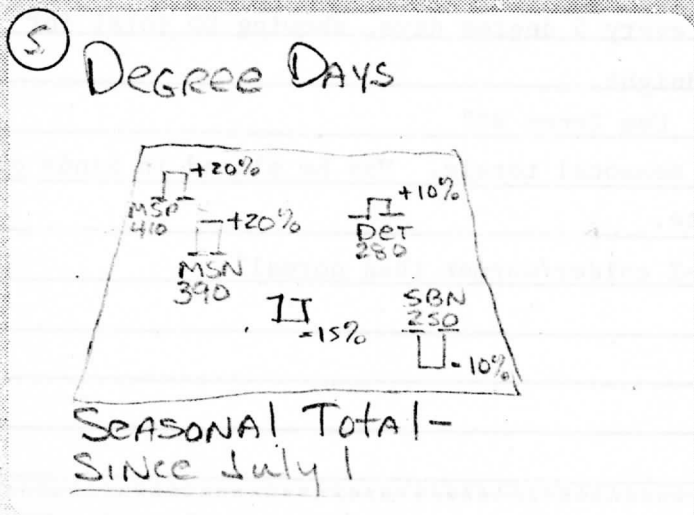 5
DEGREE DAYS
+20%
MSP
410
+20%
MSN
390
+10%
DET
280
-15%
SBN
250
-10%
SEASONAL TOTAL-
SINCE July 1